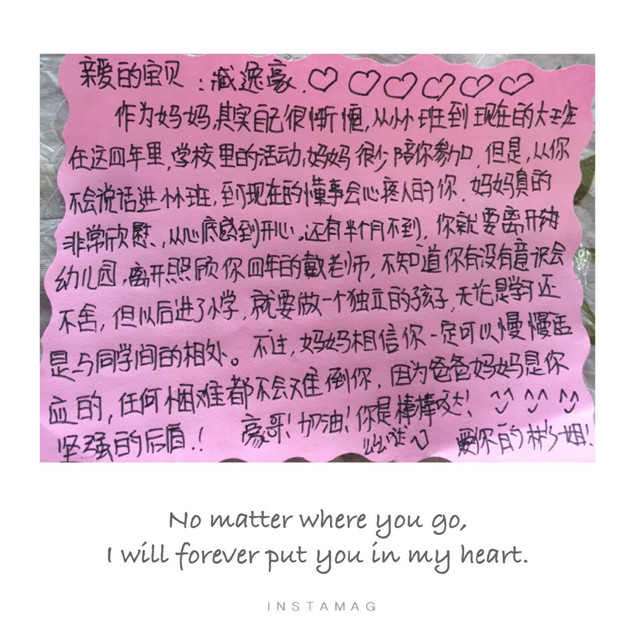 亲爱的宝贝:臧逸豪.♡♡♡♡♡♡
作为妈妈,其实自己很惭愧,从小小班到现在的大班
在这四年里,学校里的活动,妈妈很少陪你参加,但是,从你
不会说话进小小班,到现在的懂事会心疼人的你,妈妈真的
非常欣慰,从心底感到开心,还有半个月不到,你就要离开
幼儿园,离开照顾你四年的戴老师,不知道你有没有意识会
不舍,但以后进了小学,就要做一个独立的孩子,无论是学习还
是与同学间的相处。不过,妈妈相信你一定可以慢慢适
应的,任何困难都不会难倒你,因为爸爸妈妈是你
坚强的后盾.!豪哥!加油!你是棒棒哒!
么么哒
爱你的彬姐!
No matter where you go,
I will forever put you in my heart.
INSTAMAG